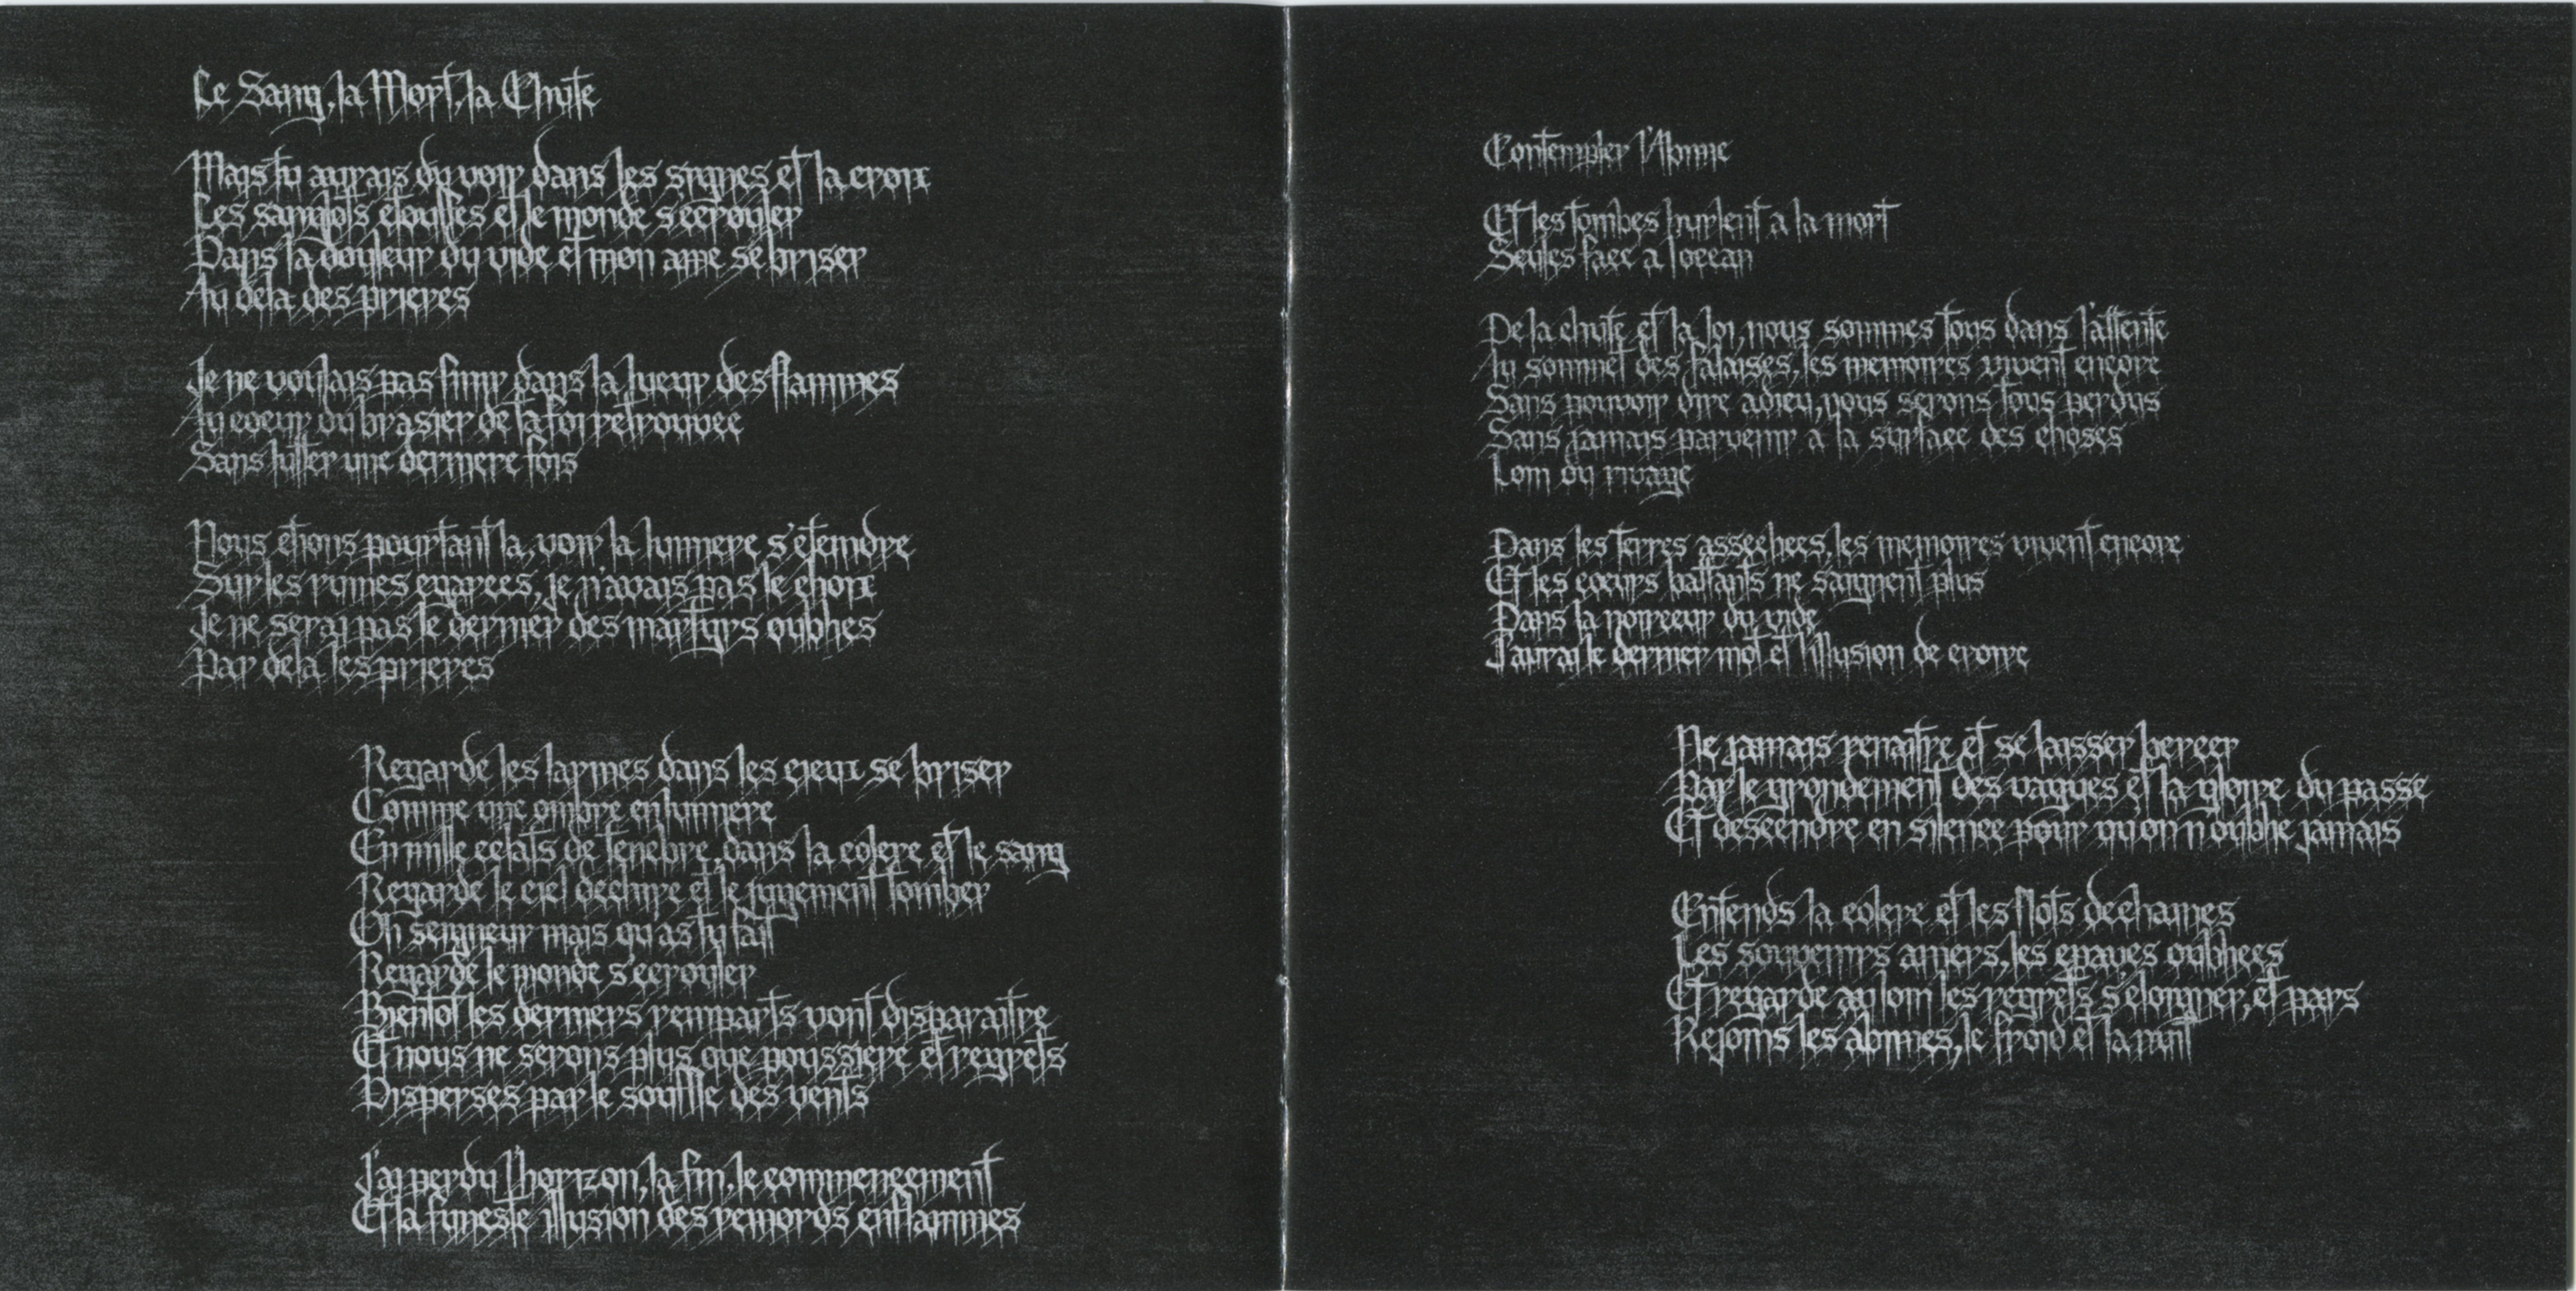 Le Sang, la Mort, la Chute
Mais tu aurais du voir dans les signes et la croix
Les sanglots etouffes et le monde s'ecrouler
Dans la douleur du vide et mon ame se briser
Au dela des prieres
Je ne voulais pas finir dans la lueur des flammes
Au coeur du brasier de la foi retrouvee
Sans lutter une derniere fois
Nous etions pourtant la, voir la lumiere s'eteindre
Sur les ruines egarees, je n'avais pas le choix
Je ne serai pas le dernier des martyrs oublies
Par dela les prieres
Regarde les larmes dans les cieux se briser
Comme une ombre en lumiere
En mille eclats de tenebre, dans la colere et le sang
Regarde le ciel dechire et le jugement tomber
Oh seigneur mais qu'as tu fait
Regarde le monde s'ecrouler
Bientot les derniers remparts vont disparaitre
Et nous ne serons plus que poussiere et regrets
Disperses par le souffle des vents
J'ai perdu l'horizon, la fin, le commencement
Et la funeste illusion des remords enflammes
Contempler l'Abime
Et les tombes hurlent a la mort
Seules face a l'ocean
De la chute et la loi, nous sommes tous dans l'attente
Au sommet des falaises, les memoires vivent encore
Sans pouvoir dire adieu, nous serons tous perdus
Sans jamais parvenir a la surface des choses
Loin du rivage
Dans les terres assechees, les memoires vivent encore
Et les coeurs battants ne saignent plus
Dans la noirceur du vide
J'aurai le dernier mot et l'illusion de croire
Ne jamais renaitre et se laisser bercer
Par le grondement des vagues et la gloire du passe
Et descendre en silence pour qu'on n'oublie jamais
Entends la colere et les flots dechaines
Les souvenirs amers, les epaves oubliees
Et regarde au loin les regrets s'eloigner, et pars
Rejoins les abimes, le froid et la nuit